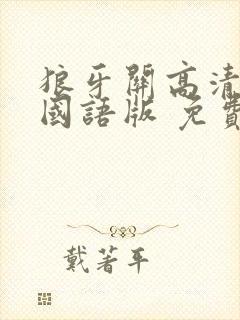 狼牙關高清
國語版 免費
戴著平